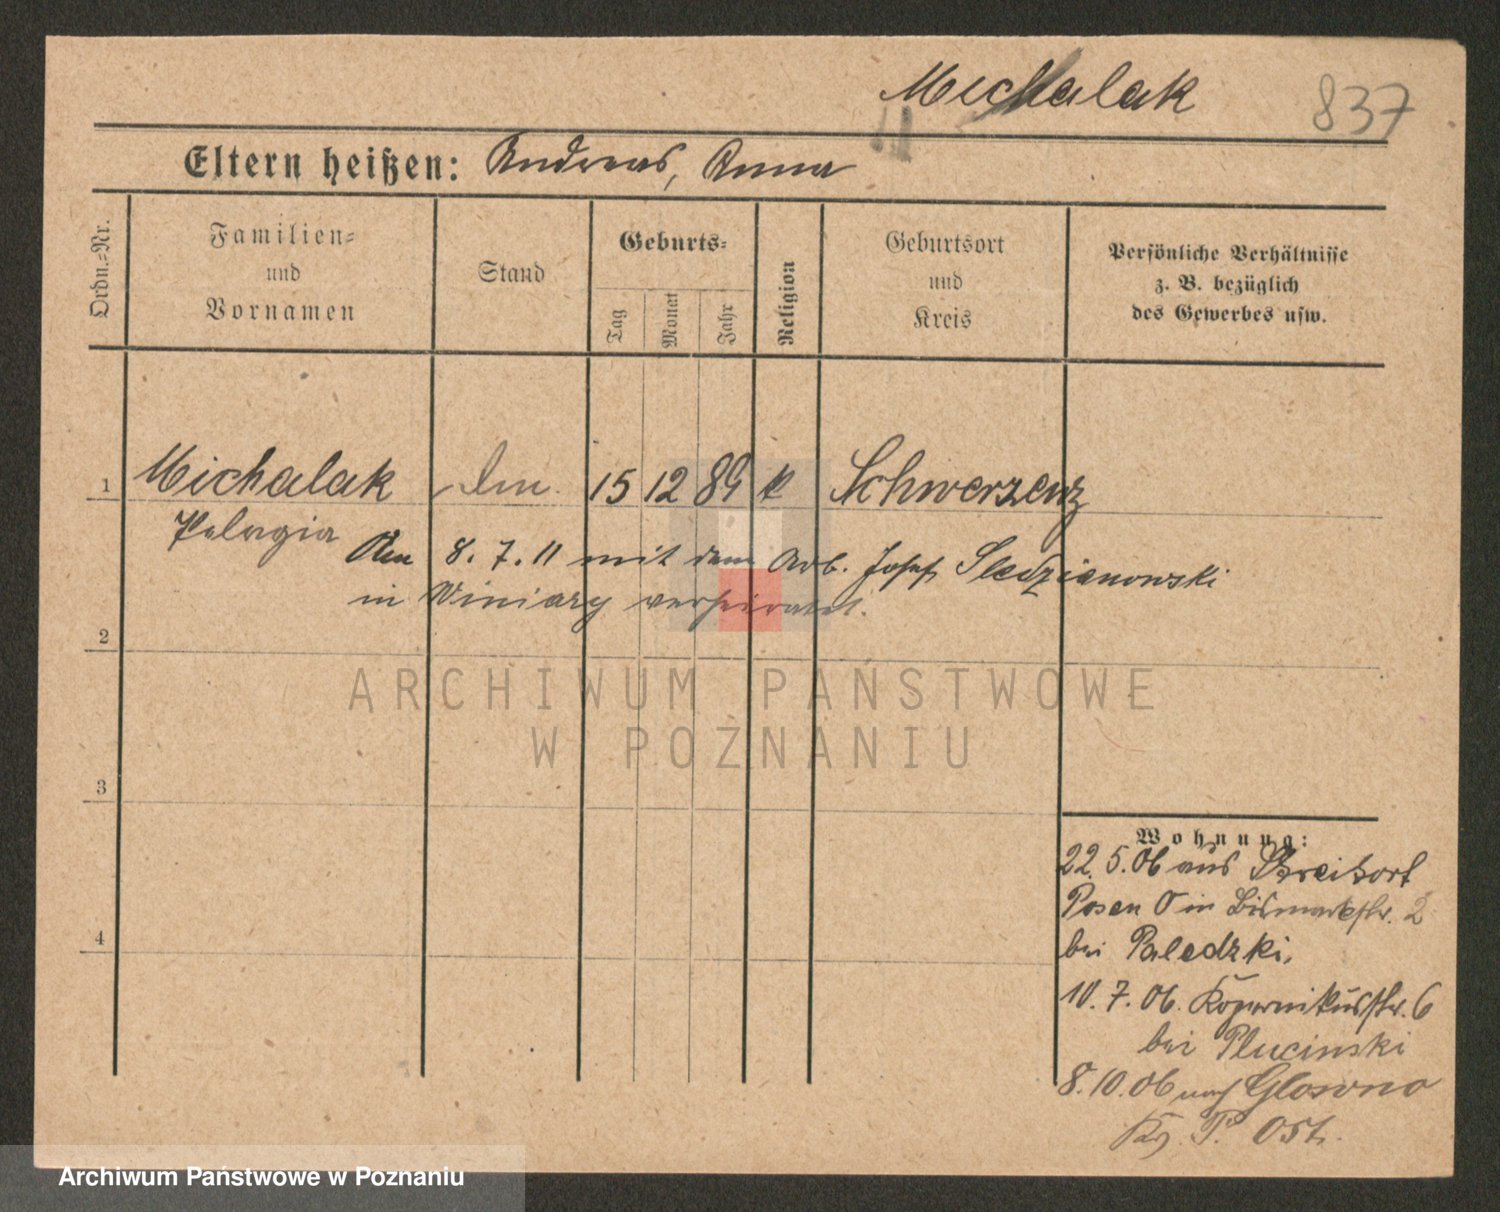 Michalak 837
Eltern heißen: Andreas, Anna
Ordn.-Nr.
Familien-
und
Vornamen
Stand
Geburts-
Tag
Monat
Jahr
Religion
Geburtsort
und
Kreis
Persönliche Verhältnisse
z. B. bezüglich
des Gewerbes usw.
1 Michalak 15 12 89 k Schwersenz
Pelagia
Am 8. 7. 11 mit dem Arb. Josef Sledzianowski
in Winiary verheiratet.
2
3
4
Wohnung:
22. 5. 06 aus
Posen O in Bismarckstr. 2
bei Paledzki.
10. 7. 06. Kopernikusstr. 6
bei Plucinski
8. 10. 06 nach Glowno
Kr. P. Ost.
ARCHIWUM PAŃSTWOWE
W POZNANIU
Archiwum Państwowe w Poznaniu